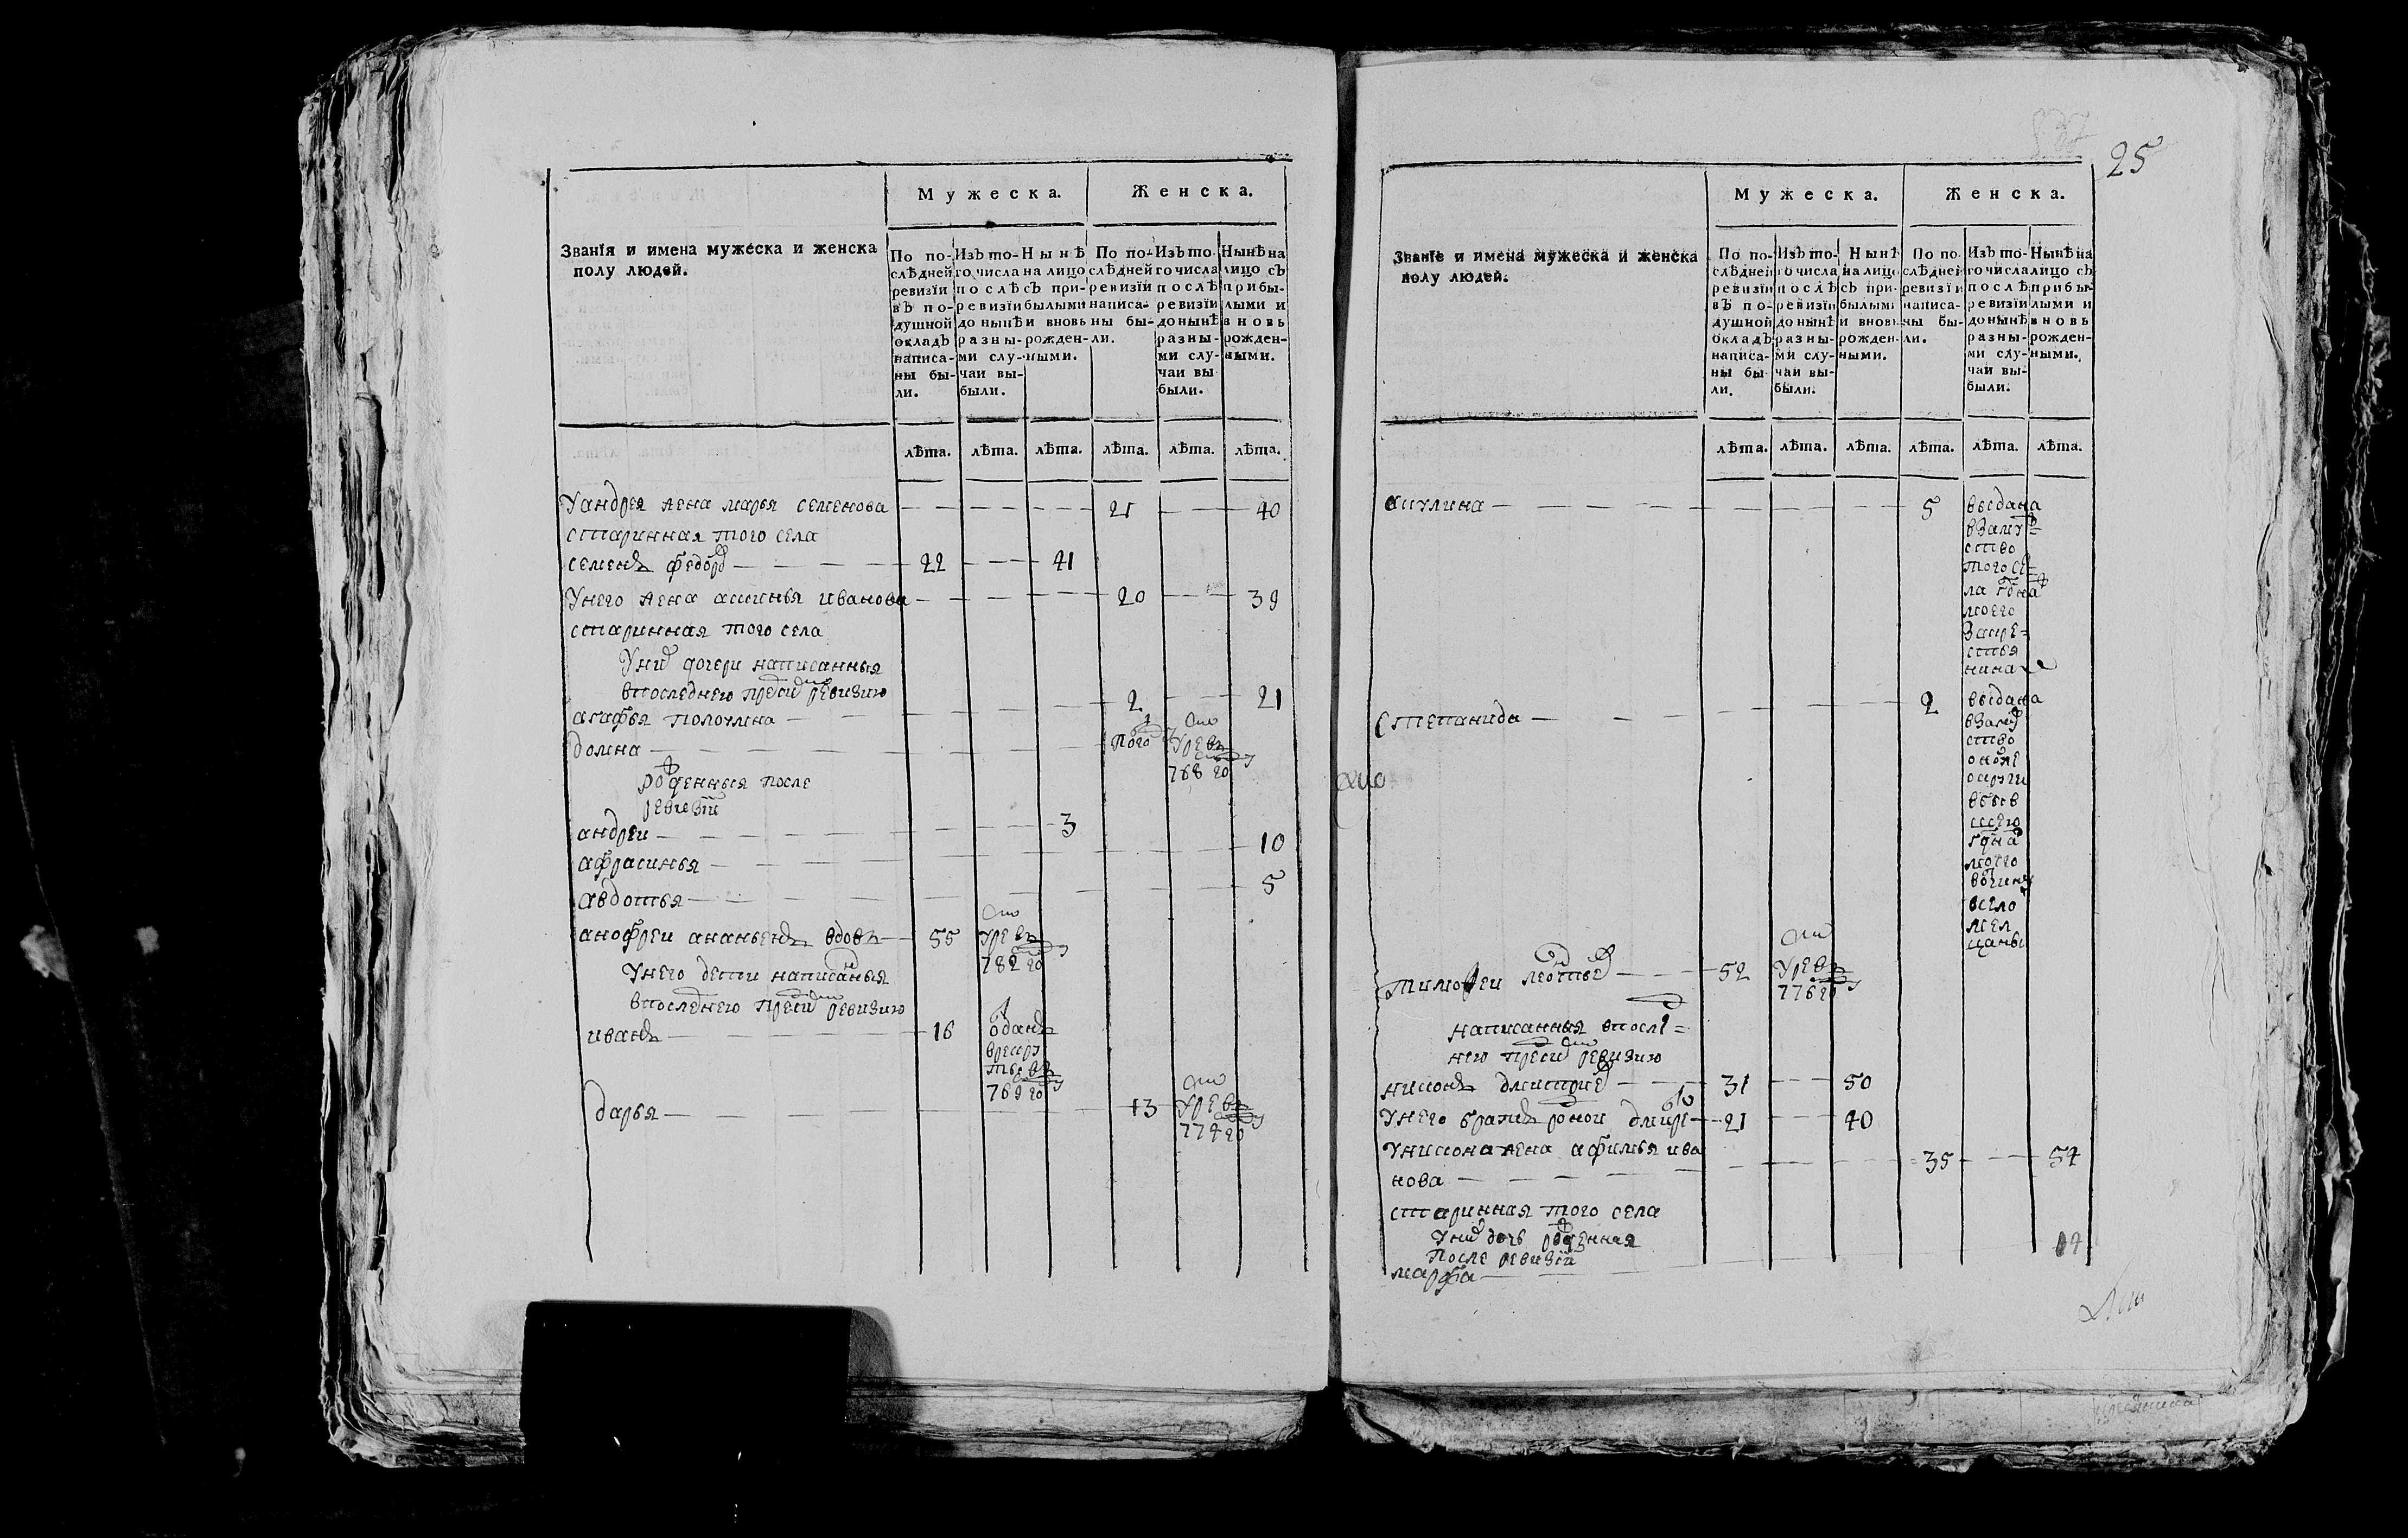 Мужеска.
Женска.
Званїя и имена мужеска и женска
полу людей.
По по-
слѣдней
ревизїи
въ по-
душной
окладъ
написа-
ны бы-
ли.
Изъ то-
го числа
послѣ
ревизїи
до нынѣ
разны-
ми слу-
чаи вы-
были.
Нынѣ
на лицо
съ при-
былыми
и вновь
рожден-
ными.
По по-
слѣдней
ревизїи
написа-
ны бы-
ли.
Изъ то-
го числа
послѣ
ревизїи
до нынѣ
разны-
ми слу-
чаи вы
были.
Нынѣ на
лицо съ
прибы-
лыми и
вновь
рожден-
ными.
лѣта. лѣта. лѣта. лѣта. лѣта. лѣта.
Уандрея жена марья семенова 21 40
старинная того села
семенъ федоров 22 41
Унего жена аксинья иванова 20 39
старинная того села
Уних дочери написанныя
впоследнею пред сим ревизию
агафья 2 21
домна
Умре въ
768 го
рожденныя после
ревизїи
андреи 3
афрасинья 10
авдотья 5
анофреи ананьевъ вдовъ 55
Умре въ
782 го
Унего дети написаныя
впоследнею пред сим ревизию
иванъ 16
отданъ
врекру
ты въ
769 го
дарья 13
Умре въ
774 го
25
Мужеска.
Женска.
Званїе и имена мужеска и женска
полу людей.
По по-
слѣдней
ревизїи
въ по-
душной
окладъ
написа-
ны бы
ли.
Изъ то-
го числа
послѣ
ревизїи
до нынѣ
разны-
ми слу-
чаи вы-
были.
Нынѣ
на лицо
съ при-
былыми
и вновь
рожден-
ными.
По по
слѣдней
ревизїи
написа-
ны бы-
ли.
Изъ то-
го числа
послѣ
ревизїи
до нынѣ
разны-
ми слу-
чаи вы-
были.
Нынѣ на
лицо съ
прибы-
лыми и
вновь
рожден-
ными.
лѣта. лѣта. лѣта. лѣта. лѣта. лѣта.
акулина 5
выдана
взамуж=
ство
того се=
ла
моего
закре=
стья
нина
степанида 2
выдана
взамуж
ство
округи
моего
вотчину
всело
тимофеи 52
Умре въ
776 го
написанныя впослед=
нею пред сим ревизию
никонъ дмитриев 31 50
Унего братъ родной 21 40
Уникона жена афимья ива
нова 35 54
старинная того села
Уних дочь рожденная
После ревизїи
марфа